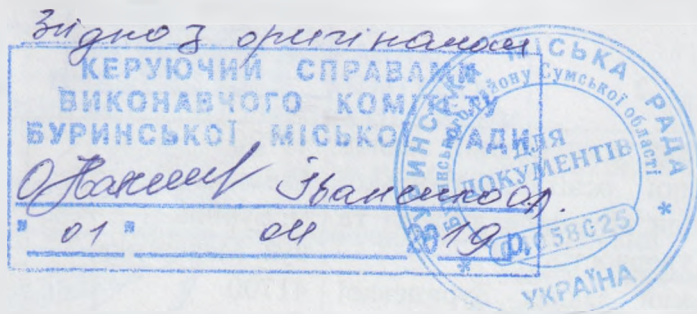 Згідно з оригіналом
КЕРУЮЧИЙ СПРАВАМИ
ВИКОНАВЧОГО КОМІТЕТУ
БУРИНСЬКОЇ МІСЬКОЇ РАДИ
"01" 04 2019 р.
БУРИНСЬКА МІСЬКА РАДА
Сумської області
ДЛЯ
ДОКУМЕНТІВ
УКРАЇНА